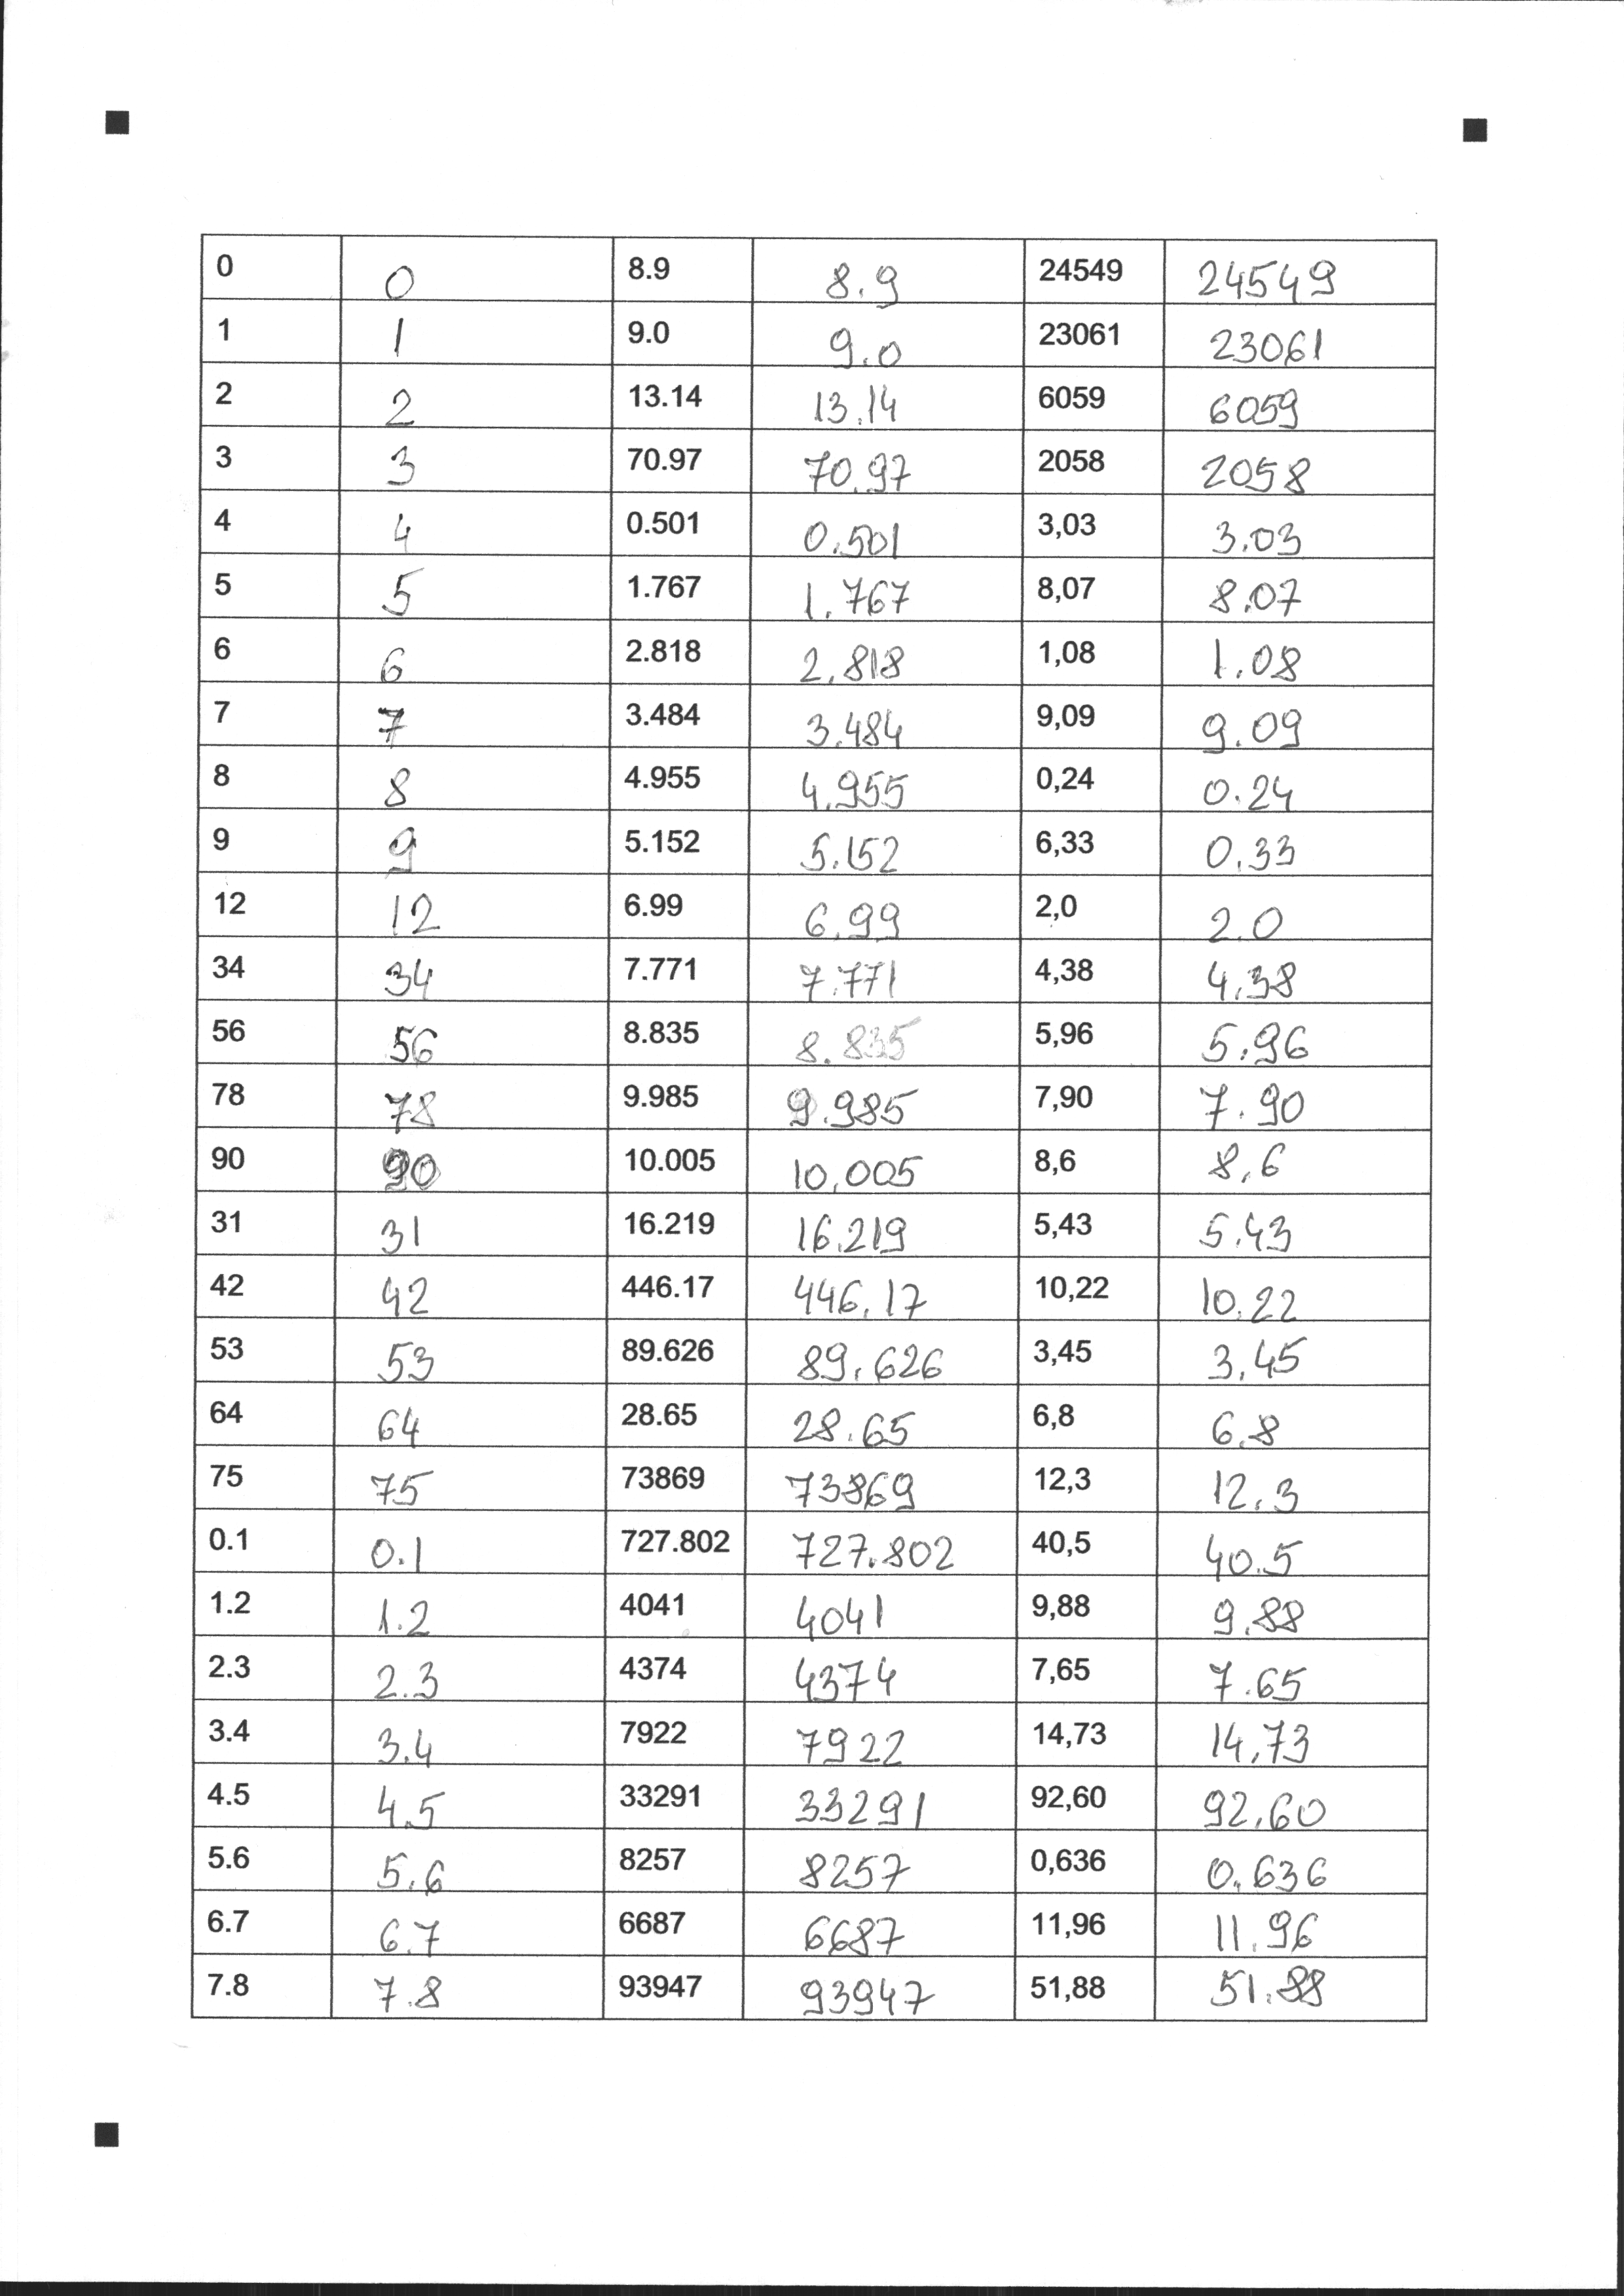 0 0 8.9 8.9 24549 24549
1 1 9.0 9.0 23061 23061
2 2 13.14 13.14 6059 6059
3 3 70.97 70.97 2058 2058
4 4 0.501 0.501 3,03 3.03
5 5 1.767 1.767 8,07 8.07
6 6 2.818 2.818 1,08 1.08
7 7 3.484 3.484 9,09 9.09
8 8 4.955 4.955 0,24 0.24
9 9 5.152 5.152 6,33 0.33
12 12 6.99 6.99 2,0 2.0
34 34 7.771 7.771 4,38 4.38
56 56 8.835 8.835 5,96 5.96
78 78 9.985 9.985 7,90 7.90
90 90 10.005 10.005 8,6 8.6
31 31 16.219 16.219 5,43 5.43
42 42 446.17 446.17 10,22 10.22
53 53 89.626 89.626 3,45 3.45
64 64 28.65 28.65 6,8 6.8
75 75 73869 73869 12,3 12.3
0.1 0.1 727.802 727.802 40,5 40.5
1.2 1.2 4041 4041 9,88 9.88
2.3 2.3 4374 4374 7,65 7.65
3.4 3.4 7922 7922 14,73 14.73
4.5 4.5 33291 33291 92,60 92.60
5.6 5.6 8257 8257 0,636 0.636
6.7 6.7 6687 6687 11,96 11.96
7.8 7.8 93947 93947 51,88 51.88